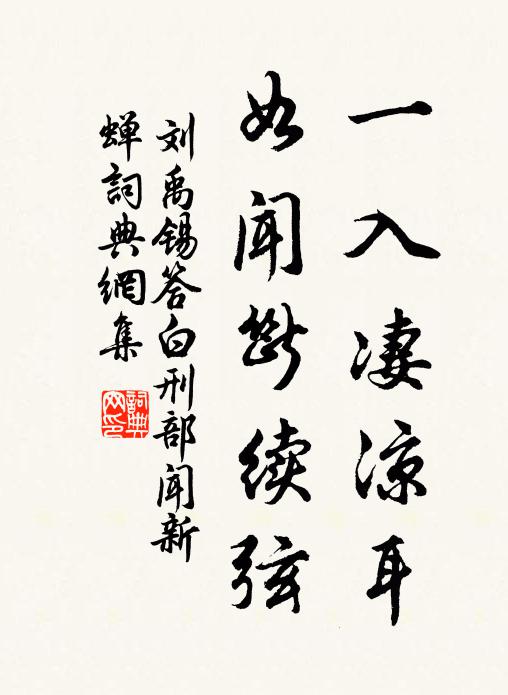 一入凄凉耳
如闻断续弦
刘禹锡答白刑部闻新
蝉詞典網集
詞典
网印